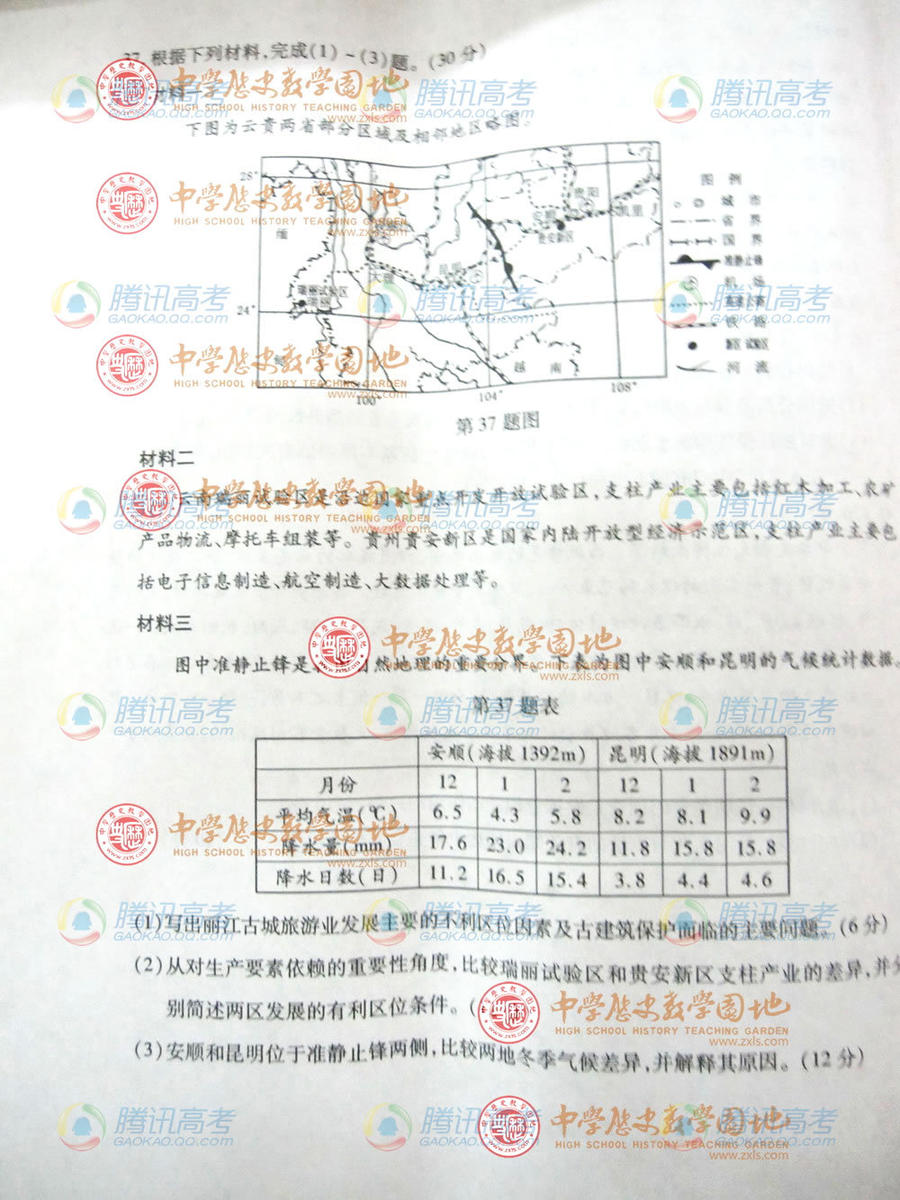 37.根据下列材料,完成(1)~(3)题。(30分)
材料一
下图为云贵两省部分区域及相邻地区略图。
28°
24°
100°
104°
108°
缅
瑞丽试验区
瑞丽
大理
昆明
安顺
贵阳
贵安新区
凯里
越 南
图 例
城 市
省 界
国 界
准静止锋
机 场
高速公路
铁 路
新区试验区
河 流
第37题图
材料二
云南瑞丽试验区是沿边国家重点开发开放试验区,支柱产业主要包括红木加工、农矿
产品物流、摩托车组装等。贵州贵安新区是国家内陆开放型经济示范区,支柱产业主要包
括电子信息制造、航空制造、大数据处理等。
材料三
图中准静止锋是 自然地理的重要分界 表为图中安顺和昆明的气候统计数据。
第37题表
安顺(海拔1392m) 昆明(海拔1891m)
月份 12 1 2 12 1 2
平均气温(℃) 6.5 4.3 5.8 8.2 8.1 9.9
降水量(mm) 17.6 23.0 24.2 11.8 15.8 15.8
降水日数(日) 11.2 16.5 15.4 3.8 4.4 4.6
(1)写出丽江古城旅游业发展主要的不利区位因素及古建筑保护面临的主要问题。(6分)
(2)从对生产要素依赖的重要性角度,比较瑞丽试验区和贵安新区支柱产业的差异,并分
别简述两区发展的有利区位条件。(
(3)安顺和昆明位于准静止锋两侧,比较两地冬季气候差异,并解释其原因。(12分)
腾讯高考
GAOKAO.QQ.COM
中学历史教学园地
HIGH SCHOOL HISTORY TEACHING GARDEN
www.zxls.com